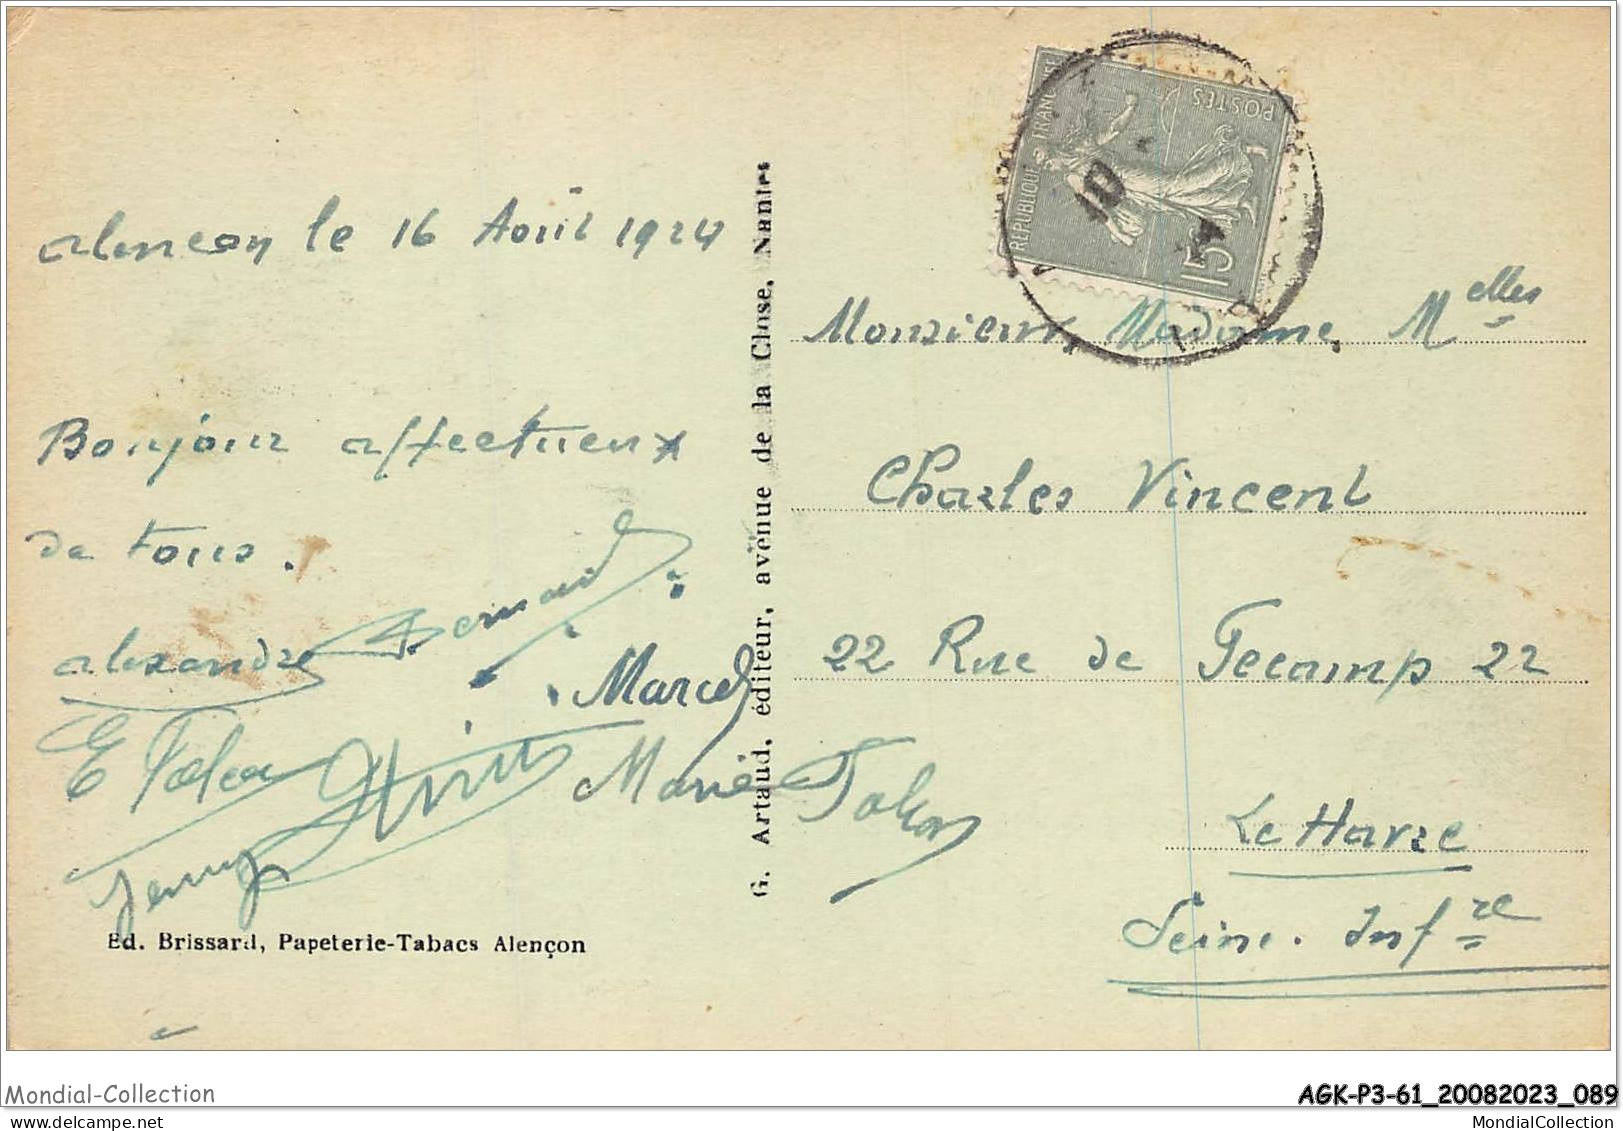 Alençon le 16 Août 1924
Bonjour affectueux
de tous.
Alexandre Bernard
Marcel
Marie
Jenny
Ed. Brissard, Papeterie-Tabacs Alençon
G. Artaud, éditeur, avenue de la Close, Nantes
REPUBLIQUE FRANCAISE
POSTES
15
10
Monsieur, Madame, Melles
Charles Vincent
22 Rue de Fecamp 22
Le Havre
Seine. Infre
Mondial-Collection
AGK-P3-61_20082023_089
MondialCollection
MondialCollection